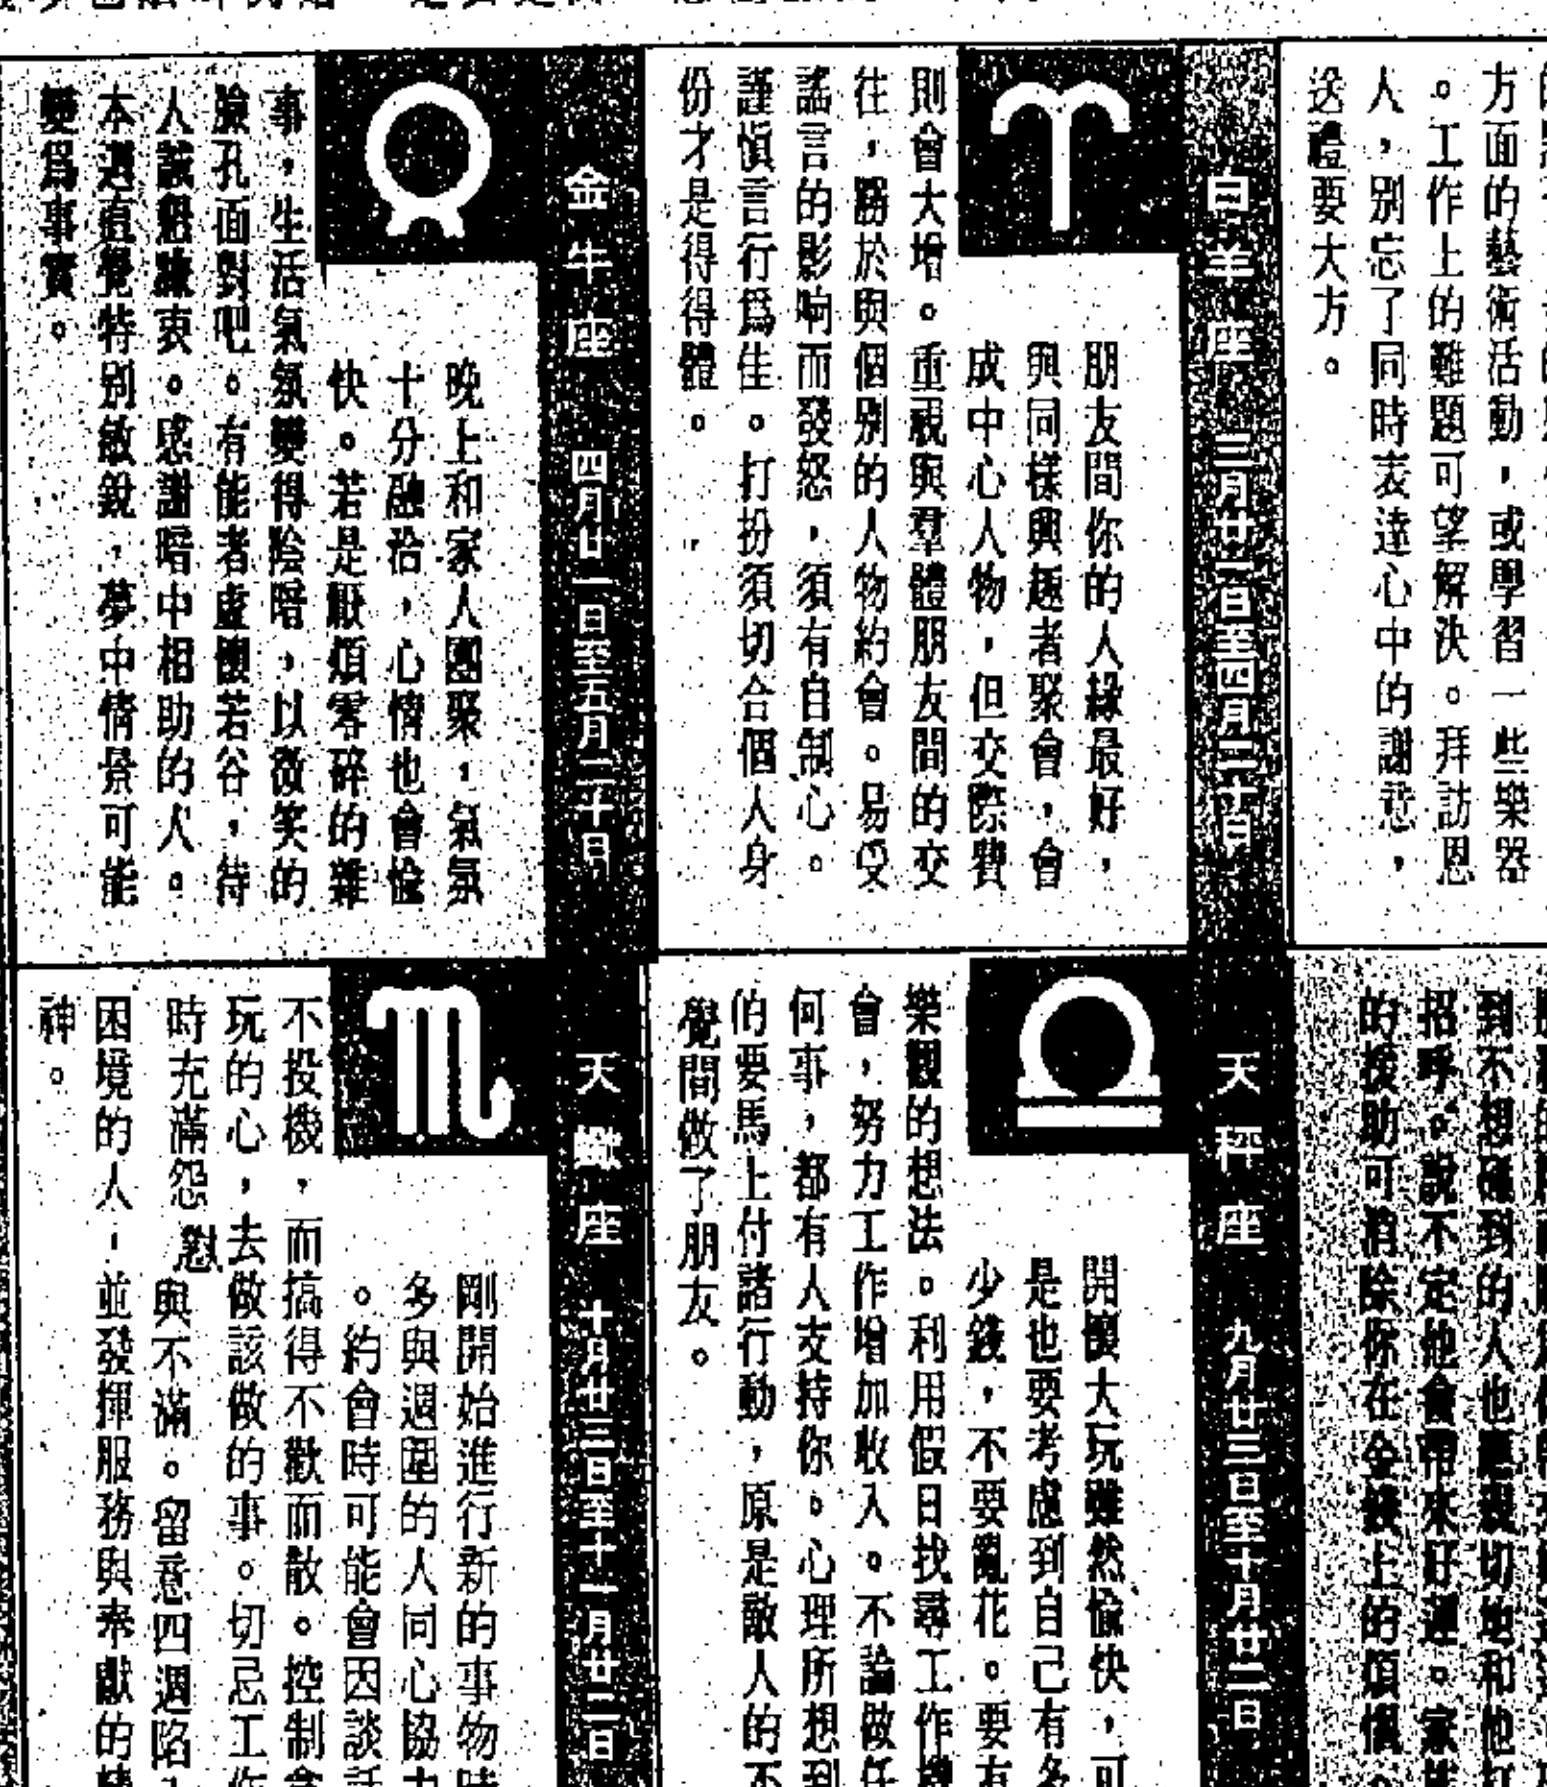 方面的藝術活動，或學習一些樂器
。工作上的難題可望解決。拜訪恩
人，別忘了同時表達心中的謝意，
送禮要大方。
白羊座 三月廿一日至四月二十日
朋友間你的人緣最好，
興同樣興趣者聚會，會
成中心人物，但交際費
則會大增。重視與羣體朋友間的交
往，勝於與個別的人物約會。易受
謠言的影响而發怒，須有自制心。
謹慎言行爲佳。打扮須切合個人身
份才是得得體。
金牛座 四月廿一日至五月二十日
晚上和家人團聚，氣氛
十分融洽，心情也會愉
快。若是厭煩零碎的雜
事，生活氣氛變得陰暗，以微笑的
臉孔面對吧。有能者虛懷若谷，待
人該懇摯衷。感謝暗中相助的人。
本週直覺特別敏銳，夢中情景可能
變爲事實。
到不想碰到的人也應親切地和他打
招呼。說不定他會帶來好運。家族
的援助可消除你在金錢上的煩惱。
天秤座 九月廿三日至十月廿二日
開懷大玩雖然愉快，可
是也要考慮到自己有多
少錢，不要亂花。要有
樂觀的想法。利用假日找尋工作機
會，努力工作增加收入。不論做任
何事，都有人支持你。心理所想到
的要馬上付諸行動，原是敵人的不
覺間做了朋友。
天蠍座 十月廿三日至十一月廿二日
剛開始進行新的事物時
多與週圍的人同心協力
。約會時可能會因談話
不投機，而搞得不歡而散。控制貪
玩的心，去做該做的事。切忌工作
時充滿怨懟與不滿。留意四週陷入
困境的人，並發揮服務與奉獻的精
神。